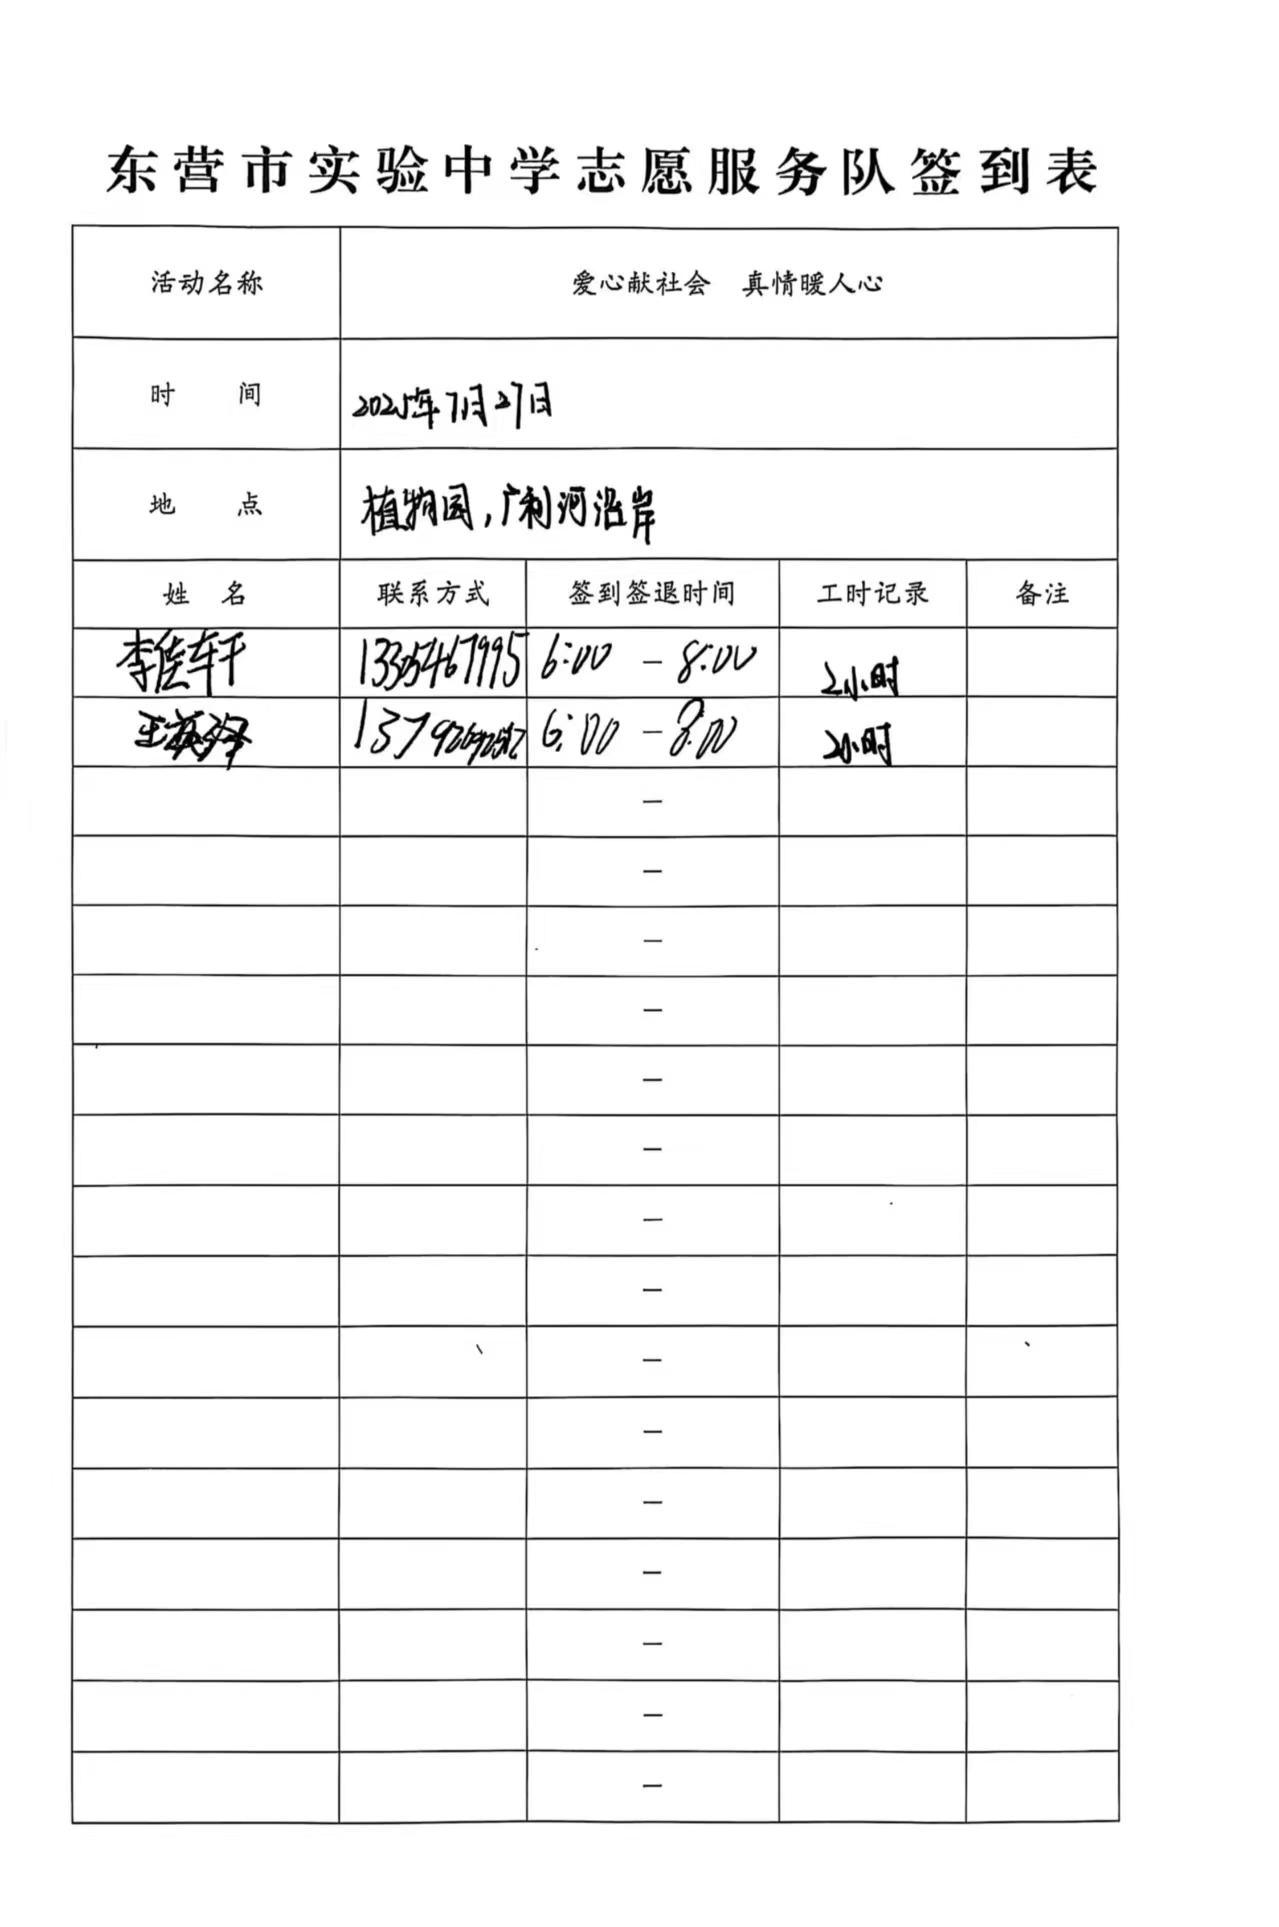 东营市实验中学志愿服务队签到表
活动名称 爱心献社会 真情暖人心
时 间 2025年7月27日
地 点 植物园,广利河沿岸
姓 名 联系方式 签到签退时间 工时记录 备注
李佳轩 13305467995 6:00 — 8:00 2小时
王英泽 6:00 — 8:00 2小时
—
—
—
—
—
—
—
—
—
—
—
—
—
—
—